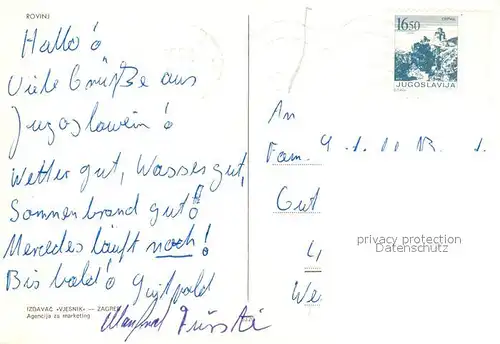 ROVINJ
Hallo ö
Viele Grüße aus
Jugoslawein ö
Wetter gut, Wasser gut,
Sonnenbrand gut ö
Mercedes läuft noch!
Bis bald ö
Manfred
IZDAVAČ »VJESNIK« — ZAGREB
Agencija za marketing
16.50
JUGOSLAVIJA
An
Fam.
Gut
privacy protection
Datenschutz